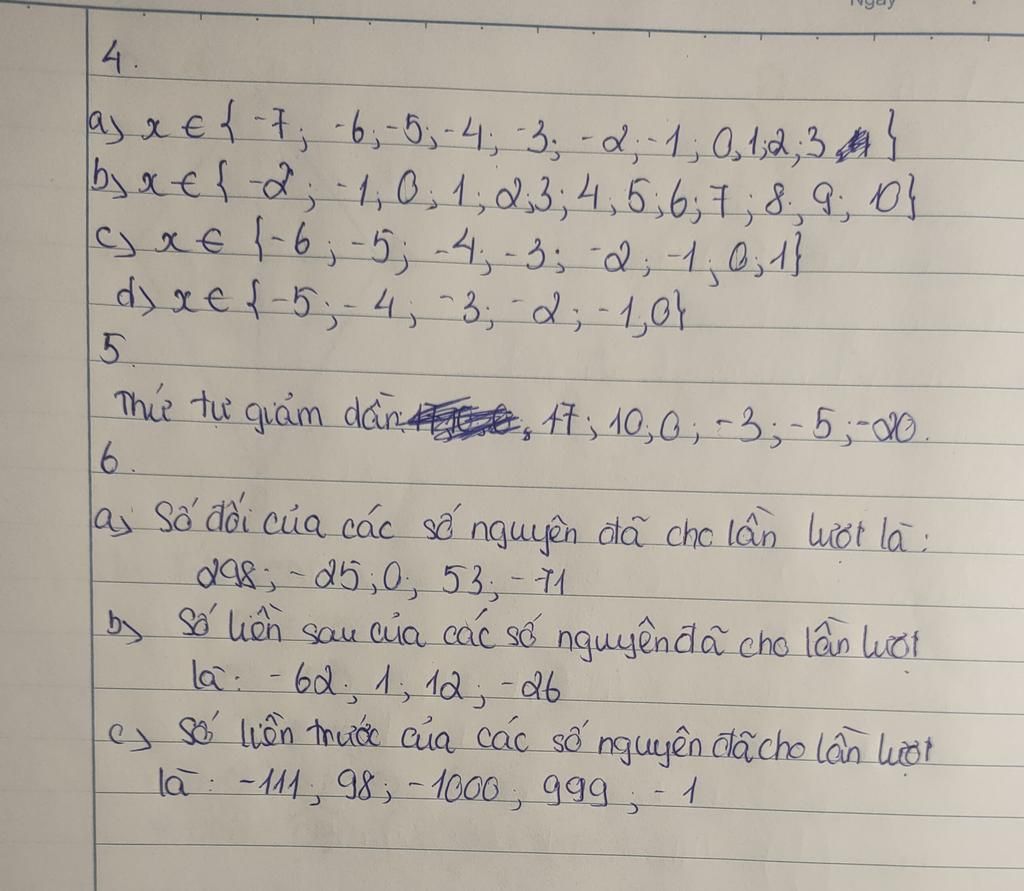 Ngày
4.
a) x ∈ { -7; -6; -5; -4; -3; -2; -1; 0; 1; 2; 3 }
b) x ∈ { -2; -1; 0; 1; 2; 3; 4; 5; 6; 7; 8; 9; 10}
c) x ∈ {-6; -5; -4; -3; -2; -1; 0; 1}
d) x ∈ {-5; -4; -3; -2; -1; 0}
5.
Thứ tự giảm dần: 17; 10; 0; -3; -5; -20.
6.
a) Số đối của các số nguyên đã cho lần lượt là:
298; -25; 0; 53; -71
b) Số liền sau của các số nguyên đã cho lần lượt
là: -62; 1; 12; -26
c) Số liền trước của các số nguyên đã cho lần lượt
là: -111; 98; -1000; 999; -1